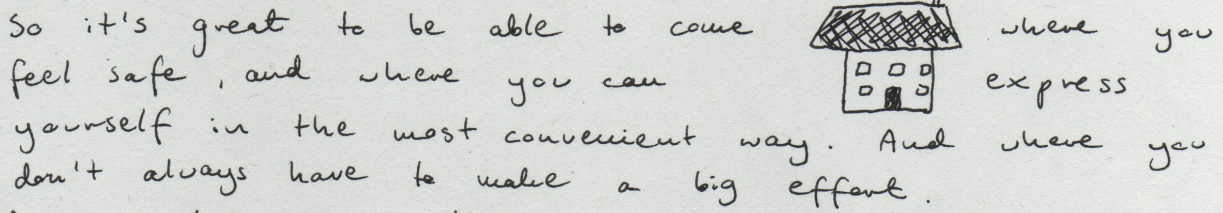 So it's great to be able to come where you
feel safe, and where you can express
yourself in the most convenient way. And where you
don't always have to make a big effort.